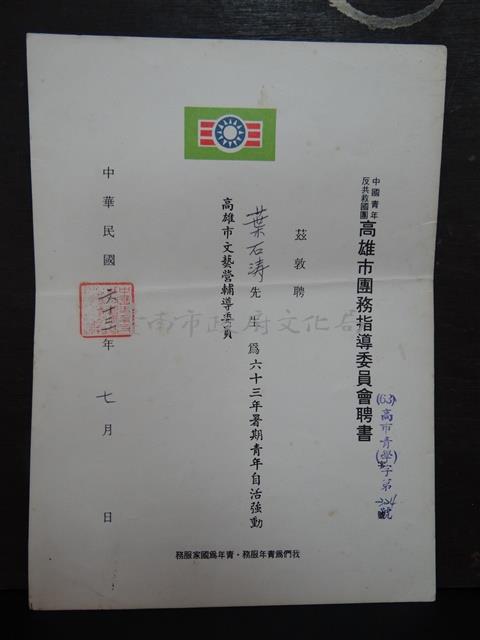 中國青年
反共救國團
高雄市團務指導委員會聘書
(63)高市青(學)字第224號
茲敦聘
葉石濤先生為六十三年暑期青年自活強動
高雄市文藝營輔導委員
中華民國六十三年七月 日
我們為青年服務・青年為國家服務
南市政府文化局